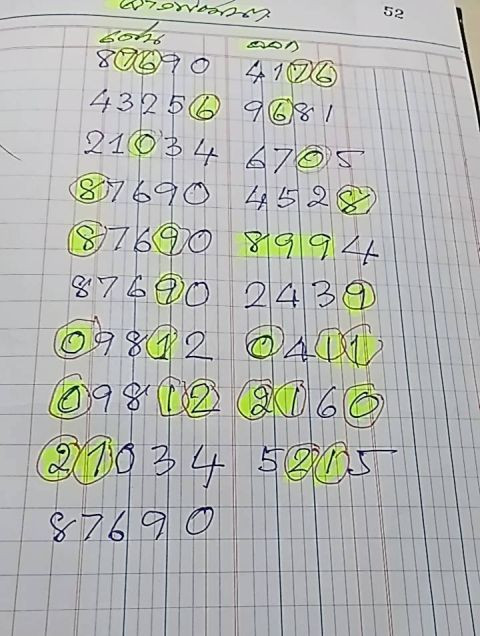 52
เด่น ออก
87690 4176
43256 9681
21034 6705
87690 4528
87690 8994
87690 2439
09812 0411
09812 2160
21034 5215
87690